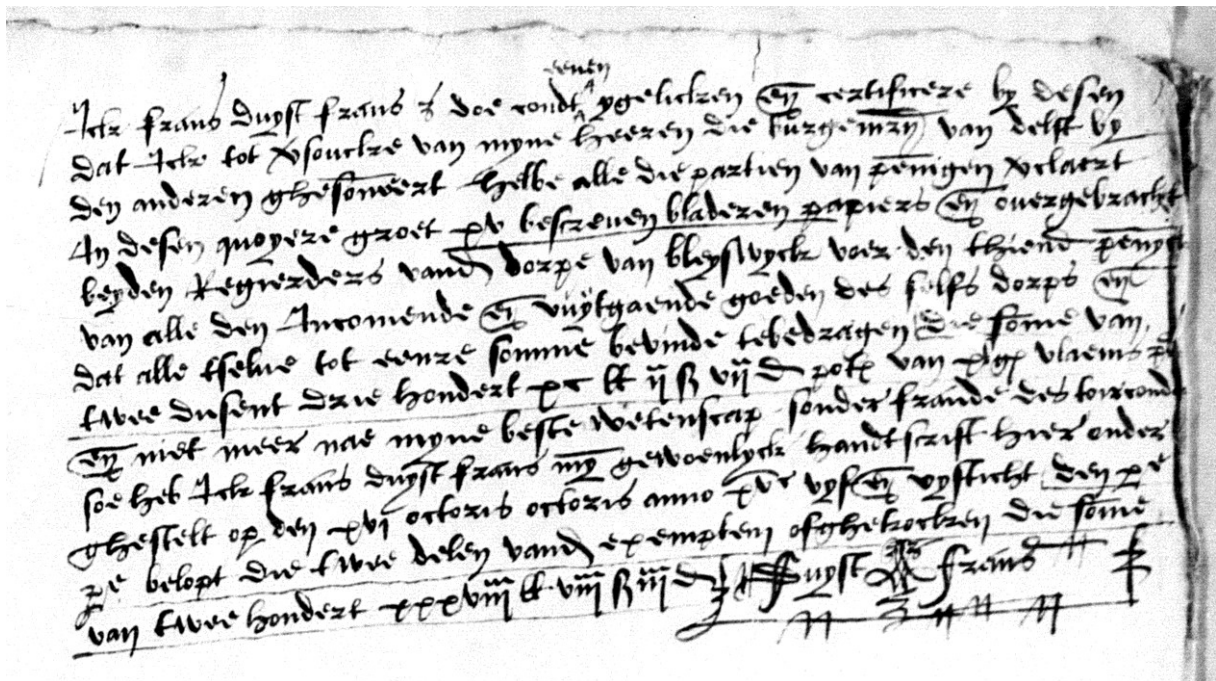 eenen
Ick frans duyst frans z doe condt ygelicken en certificere by desen
dat Ick tot vsoucke van myne heeren die burgemrn van delft by
den anderen ghesomeert hebbe alle die partien van penigen vclaert
In desen quoyere groet xv bescreven bladeren papiers en overgebracht
beyden Regierders vand dorpe van bleyswyck voer den thiend penyck
van alle den Incomende en vuytgaende goeden des selfs dorps en
dat alle tselve tot eenre somme bevinde tebedragen die some van
twee dusent drie hondert xc lb ij s vij d van xl gr vlaems
en niet meer nae myne beste wetenscap sonder fraude des toirconde
soe heb Ick frans duyst frans myn gewoenlyck handtscrift hier onder
ghestelt op den xvi octoris octoris anno xvc vyf en vyfticht den xe
xe belopt die twee delen vand exempten ofghetrocken die some
van twee hondert xxxviii lb viii s iii d Duyst frans